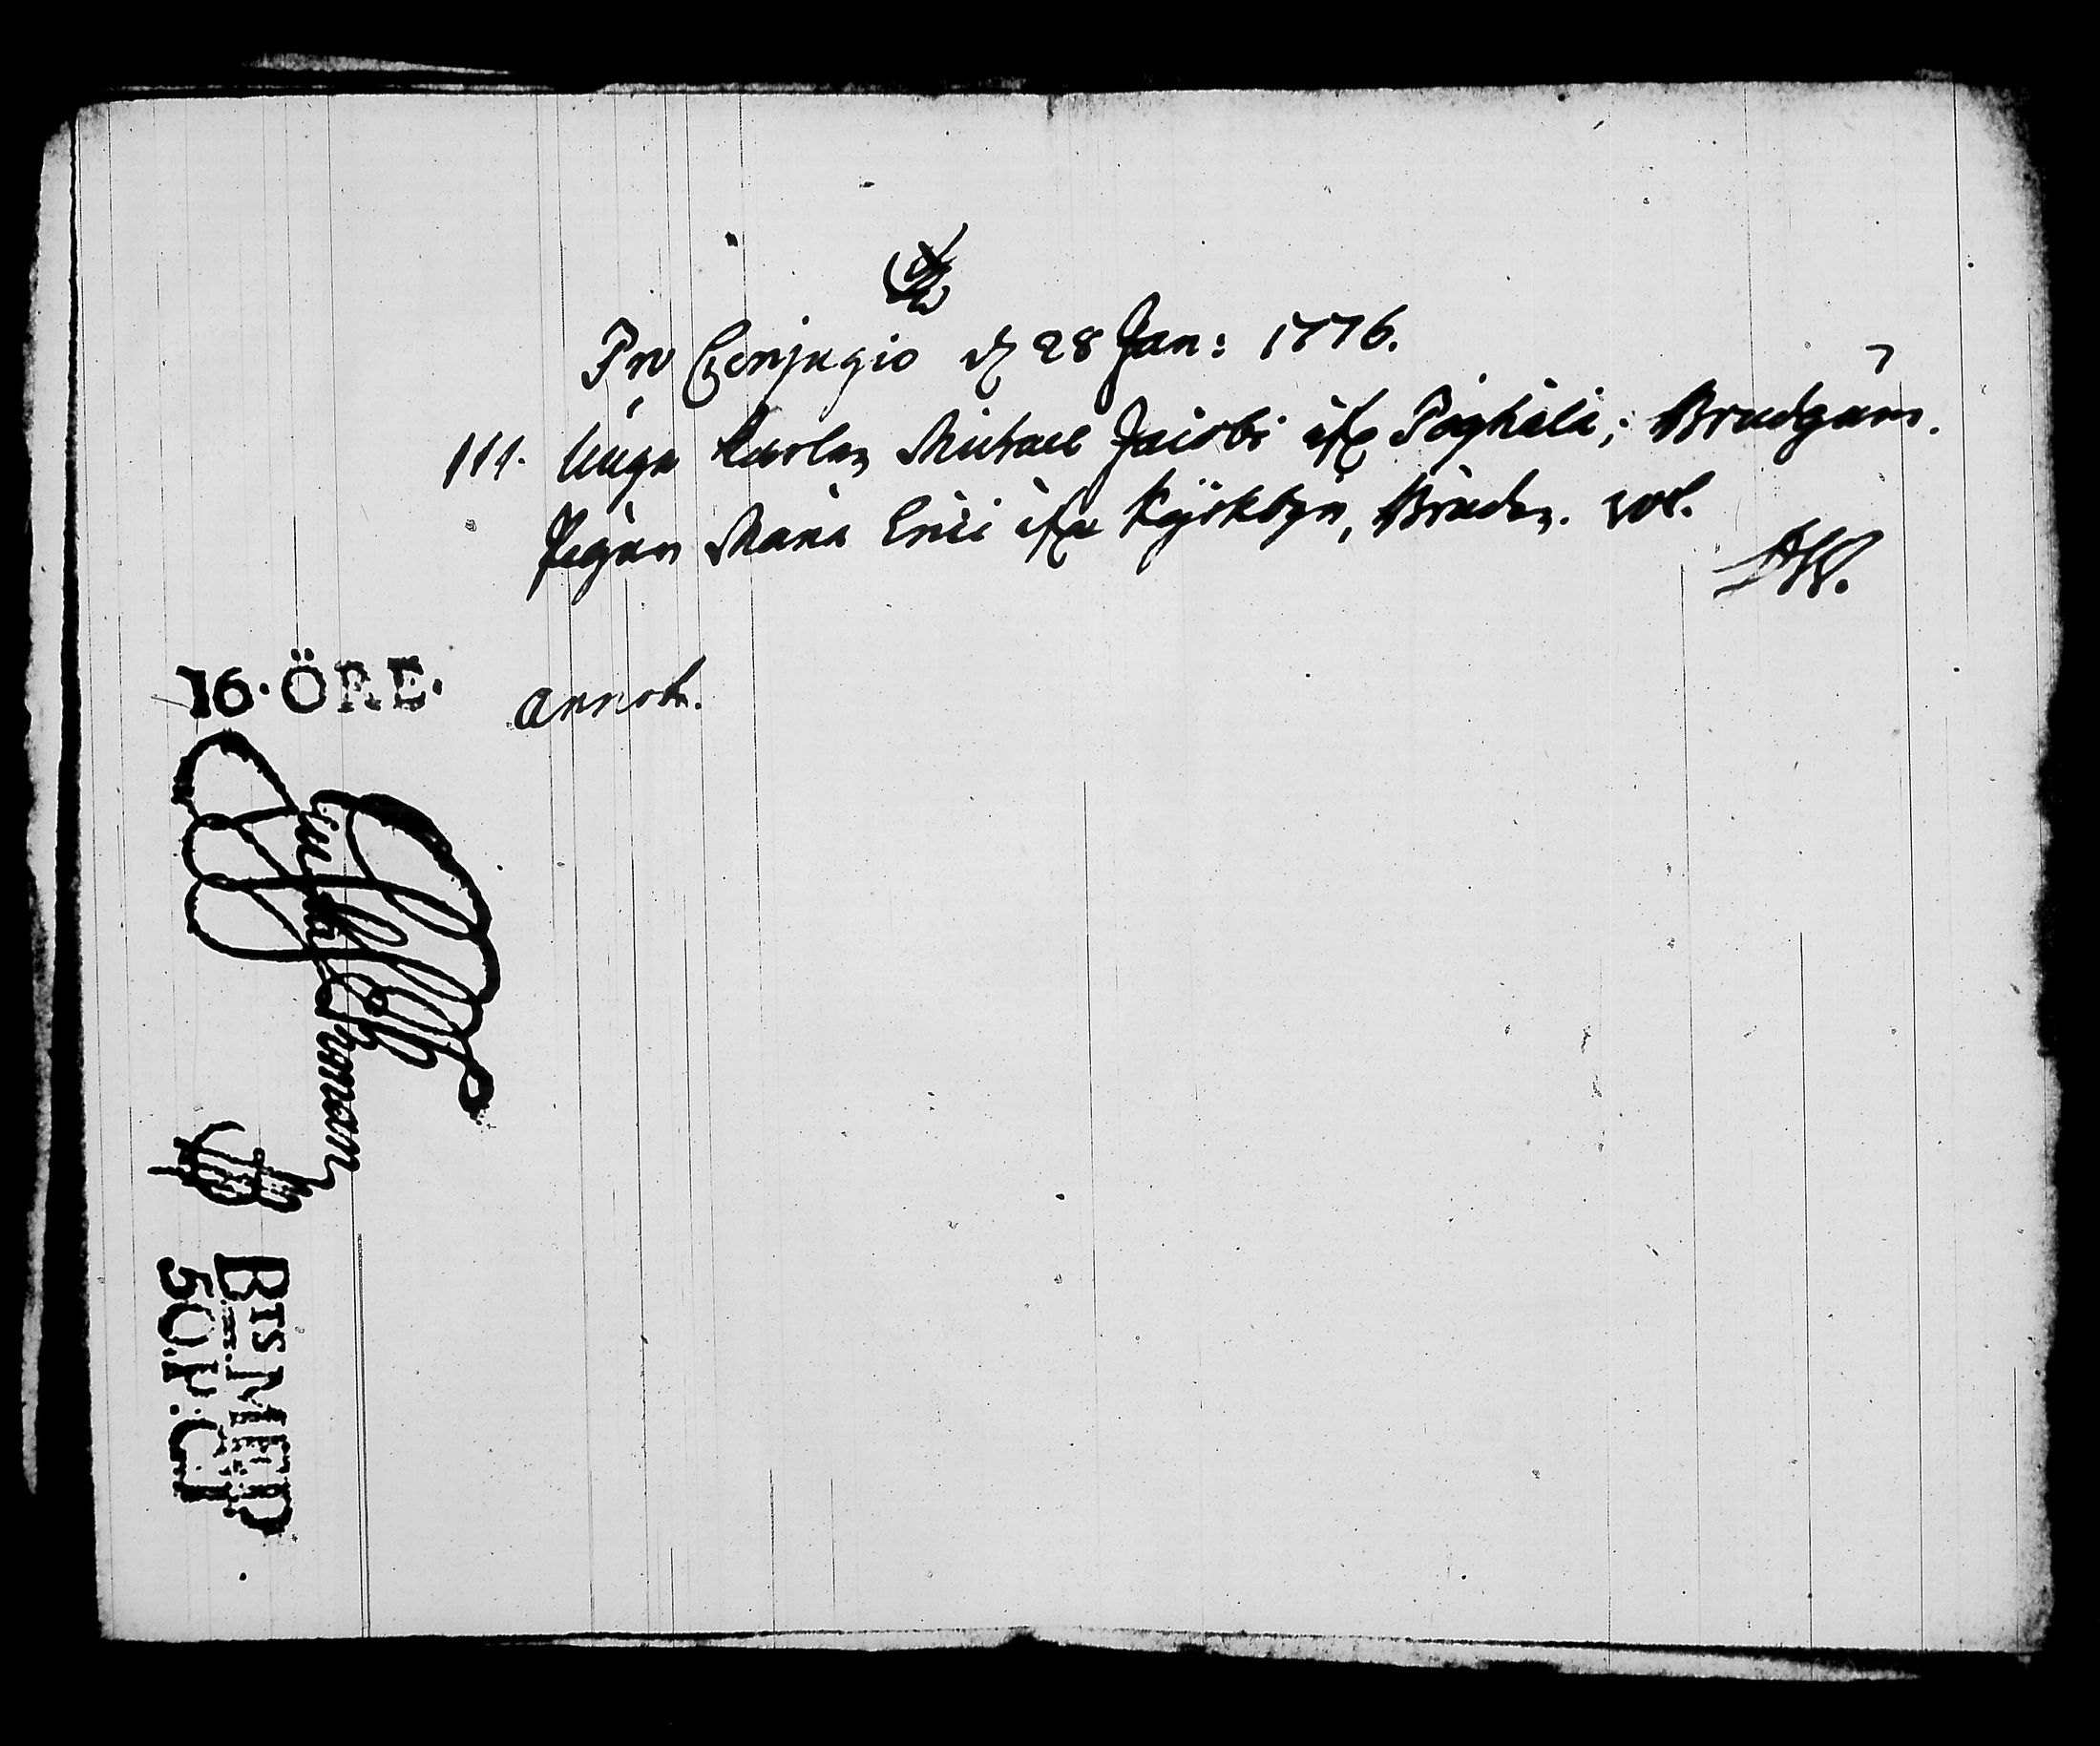 Pro Conjugio d 28 Jan: 1776.
111. Unga Karlen Michael Jacobi ifr Påghala; Brudgum.
Pigan Maria Erici ifr Kyrkbyn, Bruden. vol.
AW.
annot.
16·ÖRE·
BTS MED
50.P.CT